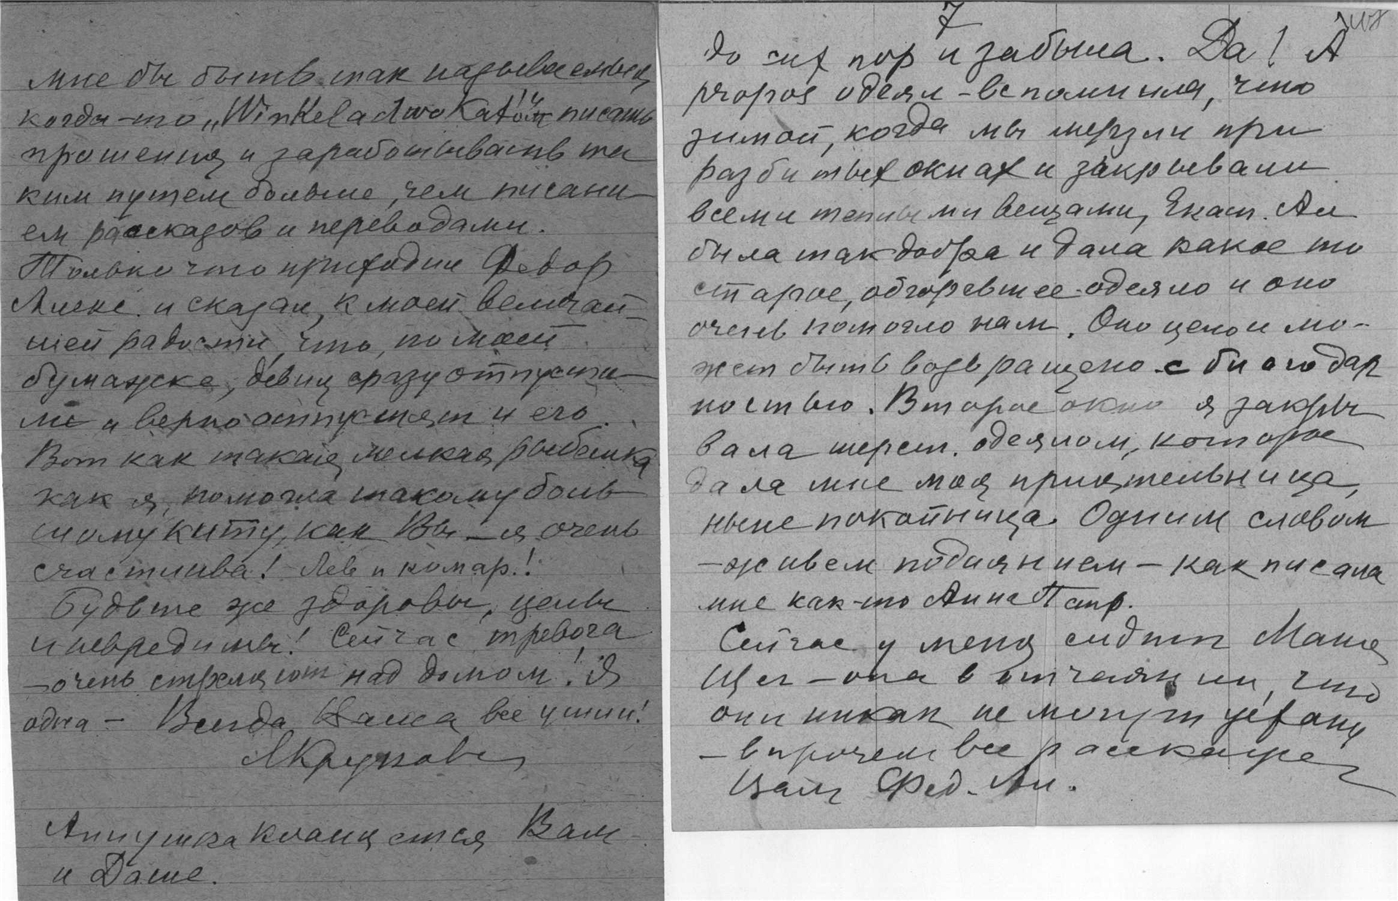 мне бы быть так называемым
когда-то „Winkeladwokat'ом" писать
прошения и зарабатывать та
ким путем больше, чем писани-
ем рассказов и переводами.
Только что приходил Федор
Алекс. и сказал, к моей величай-
шей радости, что, по моей
бумажке, девиц сразу отпусти-
ли и верно отпустят и его.
Вот как такая мелкая рыбешка
как я, помогла такому боль
шому киту, как Вы – я очень
счастлива! Лев и комар!
Будьте же здоровы, целы
и невредимы! Сейчас тревога
– очень стреляют над домом! Я
одна – Всегда Ваша
Аннушка кланяется Вам
и Даше.
7
до сих пор и забыла. Да! А
propos одеял – вспомнила, что
зимой, когда мы мерзли при
разбитых окнах и закрывали
всеми теплыми вещами, Екат. Ал
была так добра и дала какое то
старое, обгоревшее одеяло и оно
очень помогло нам. Оно цело и мо-
жет быть возвращено с благодар
ностью. Второе окно я закры
вала шерст. одеялом, которое
дала мне моя приятельница,
ныне покойница. Одним словом
– живем подаянием – как писала
мне как-то Анна Петр.
Сейчас у меня сидит Маша
Щег – она в отчаянии, что
они никак не могут уехать
– впрочем все расскажет
Вам Фед. Ал.